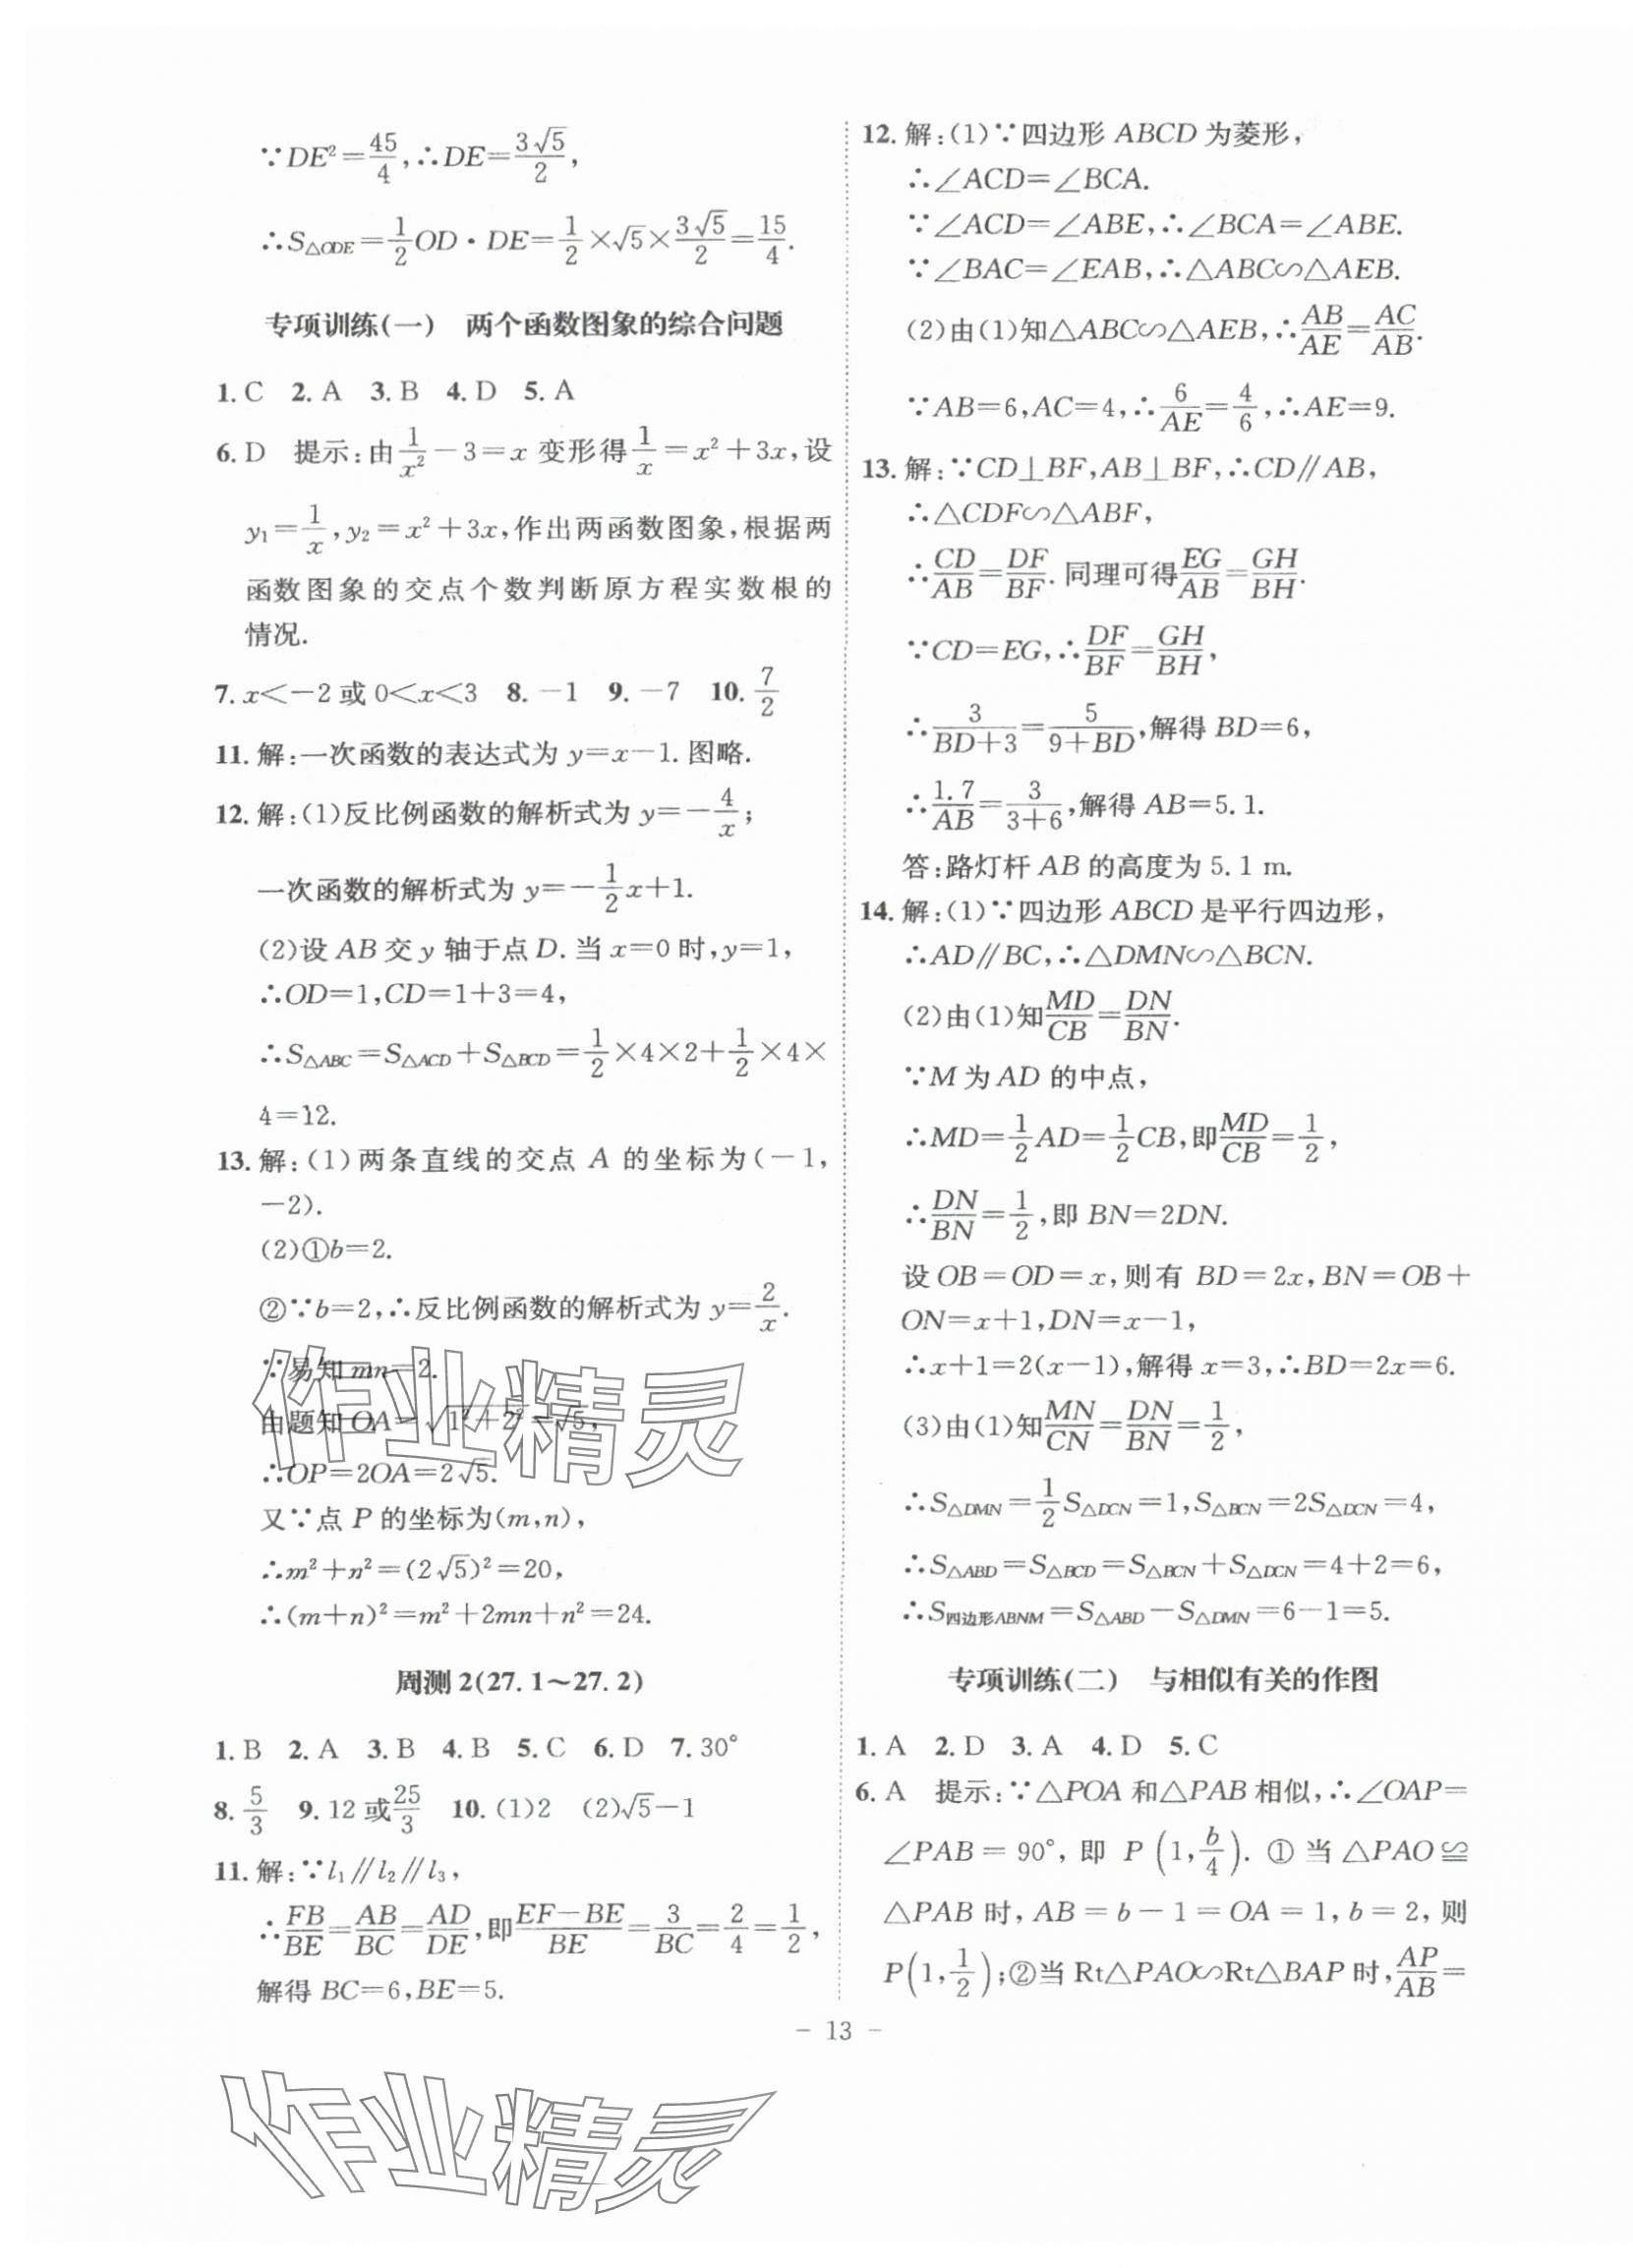 ∵DE²=45/4,∴DE=3√5/2,
∴S△ODE=1/2OD·DE=1/2×√5×3√5/2=15/4.
专项训练(一) 两个函数图象的综合问题
1. C 2. A 3. B 4. D 5. A
6. D 提示:由1/x²-3=x 变形得1/x=x²+3x,设
y₁=1/x,y₂=x²+3x,作出两函数图象,根据两
函数图象的交点个数判断原方程实数根的
情况.
7. x<-2或0<x<3 8. -1 9. -7 10. 7/2
11. 解:一次函数的表达式为 y=x-1. 图略.
12. 解:(1)反比例函数的解析式为 y=-4/x;
一次函数的解析式为 y=-1/2x+1.
(2)设 AB 交 y 轴于点 D. 当 x=0 时,y=1,
∴OD=1,CD=1+3=4,
∴S△ABC=S△ACD+S△BCD=1/2×4×2+1/2×4×
4=12.
13. 解:(1)两条直线的交点 A 的坐标为(-1,
-2).
(2)①b=2.
②∵b=2,∴反比例函数的解析式为 y=2/x.
∵易知 mn=2.
由题知 OA=√(1²+2²)=√5,
∴OP=2OA=2√5.
又∵点 P 的坐标为(m,n),
∴m²+n²=(2√5)²=20,
∴(m+n)²=m²+2mn+n²=24.
周测 2(27.1~27.2)
1. B 2. A 3. B 4. B 5. C 6. D 7. 30°
8. 5/3 9. 12 或25/3 10. (1)2 (2)√5-1
11. 解:∵l₁∥l₂∥l₃,
∴FB/BE=AB/BC=AD/DE,即(EF-BE)/BE=3/BC=2/4=1/2,
解得 BC=6,BE=5.
12. 解:(1)∵四边形 ABCD 为菱形,
∴∠ACD=∠BCA.
∵∠ACD=∠ABE,∴∠BCA=∠ABE.
∵∠BAC=∠EAB,∴△ABC∽△AEB.
(2)由(1)知△ABC∽△AEB,∴AB/AE=AC/AB.
∵AB=6,AC=4,∴6/AE=4/6,∴AE=9.
13. 解:∵CD⊥BF,AB⊥BF,∴CD∥AB,
∴△CDF∽△ABF,
∴CD/AB=DF/BF. 同理可得EG/AB=GH/BH.
∵CD=EG,∴DF/BF=GH/BH,
∴3/(BD+3)=5/(9+BD),解得 BD=6,
∴1.7/AB=3/(3+6),解得 AB=5.1.
答:路灯杆 AB 的高度为 5.1 m.
14. 解:(1)∵四边形 ABCD 是平行四边形,
∴AD∥BC,∴△DMN∽△BCN.
(2)由(1)知MD/CB=DN/BN.
∵M 为 AD 的中点,
∴MD=1/2AD=1/2CB,即MD/CB=1/2,
∴DN/BN=1/2,即 BN=2DN.
设 OB=OD=x,则有 BD=2x,BN=OB+
ON=x+1,DN=x-1,
∴x+1=2(x-1),解得 x=3,∴BD=2x=6.
(3)由(1)知MN/CN=DN/BN=1/2,
∴S△DMN=1/2S△DCN=1,S△BCN=2S△DCN=4,
∴S△ABD=S△BCD=S△BCN+S△DCN=4+2=6,
∴S四边形ABNM=S△ABD-S△DMN=6-1=5.
专项训练(二) 与相似有关的作图
1. A 2. D 3. A 4. D 5. C
6. A 提示:∵△POA 和△PAB 相似,∴∠OAP=
∠PAB=90°,即 P(1,b/4). ①当△PAO≌
△PAB 时,AB=b-1=OA=1,b=2,则
P(1,1/2);②当 Rt△PAO∽Rt△BAP 时,AP/AB=
- 13 -
作业精灵
作业精灵